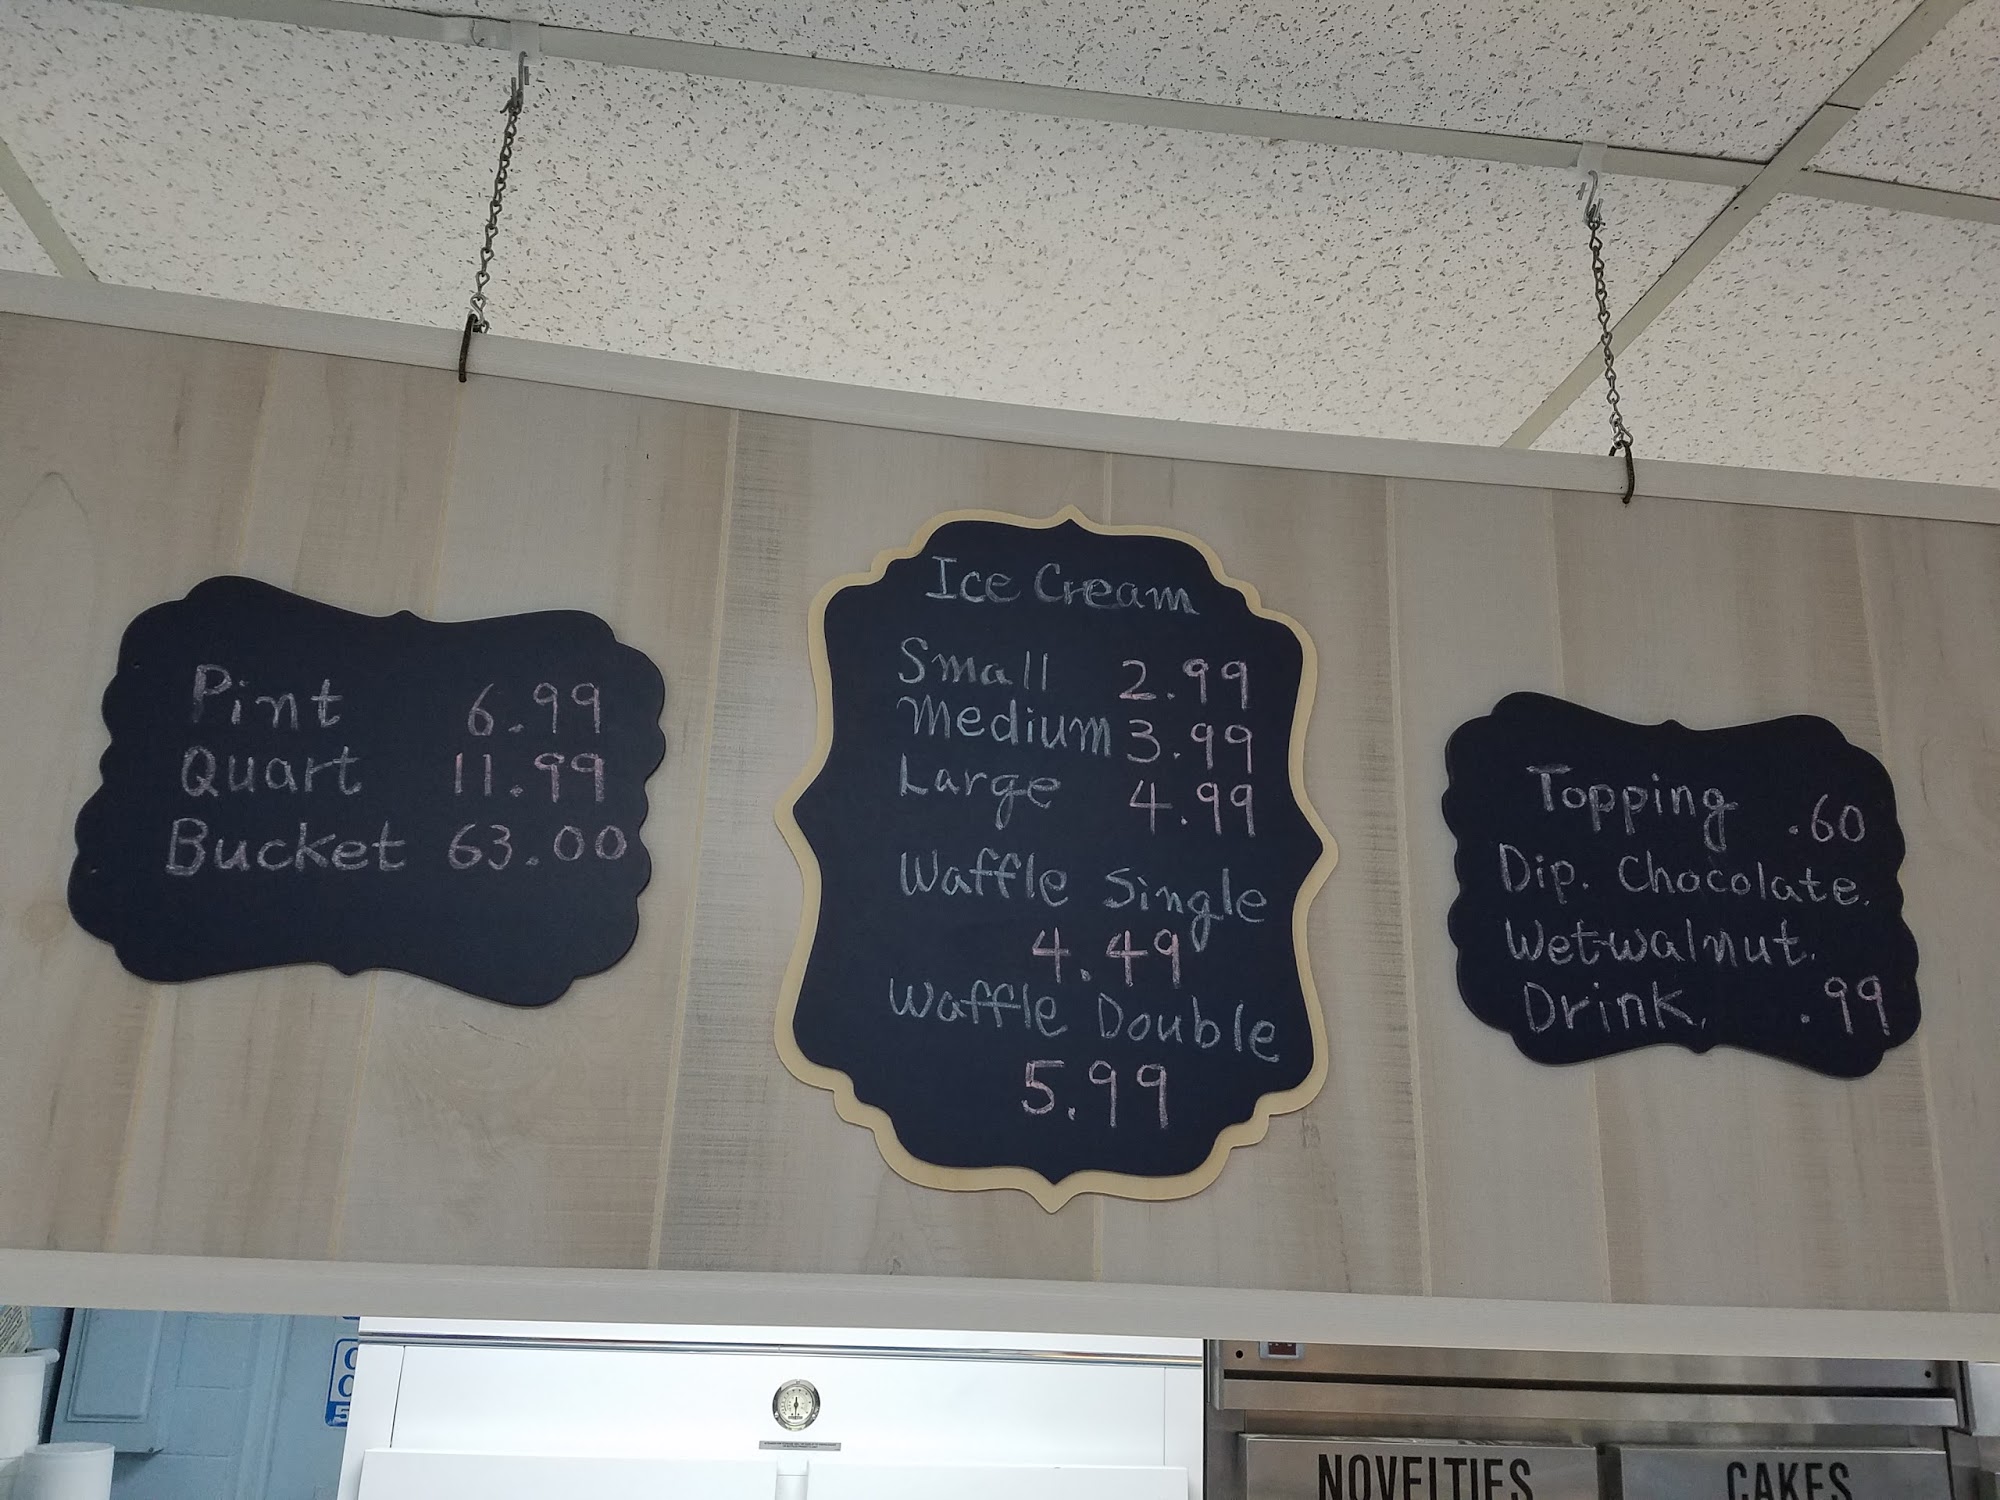 Pint 6.99
Quart 11.99
Bucket 63.00
Ice Cream
Small 2.99
Medium 3.99
Large 4.99
Waffle Single
4.49
Waffle Double
5.99
Topping .60
Dip. Chocolate.
Wetwalnut.
Drink, .99
NOVELTIES
CAKES